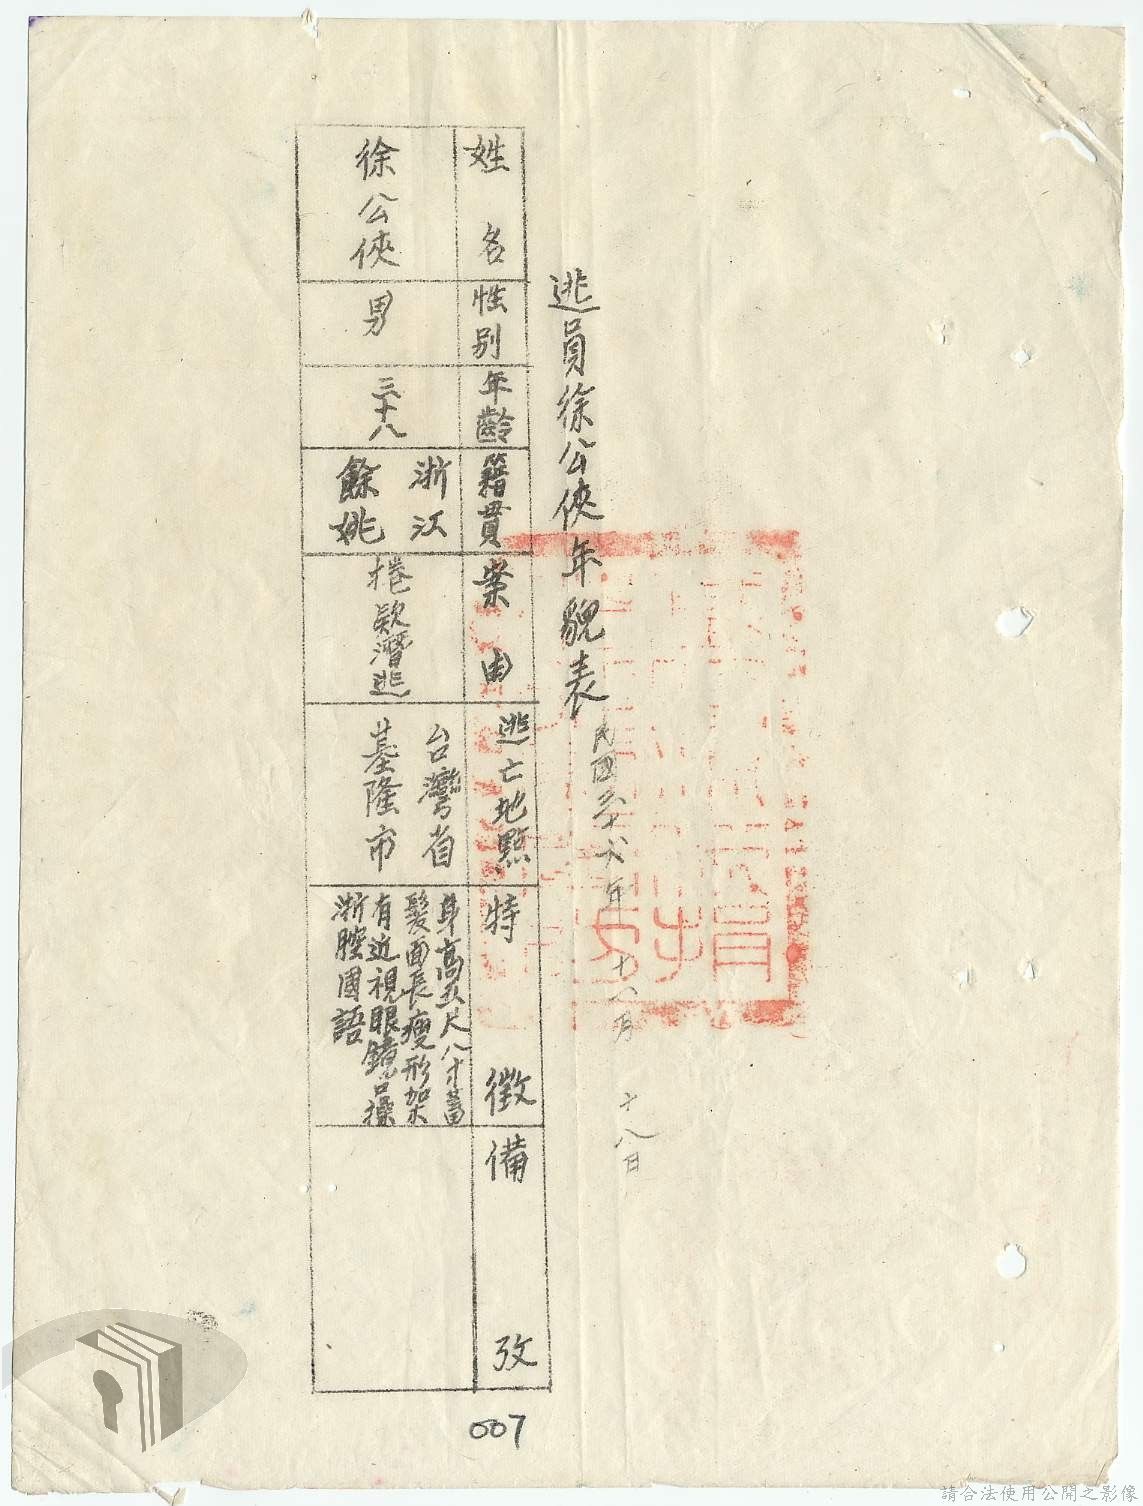 逃員徐公俠年貌表
民國三十八年十一月十八日
姓名
性別
年齡
籍貫
案由
逃亡地點
特徵
備攷
徐公俠
男
三十八
浙江
餘姚
捲欵潛逃
台灣省
基隆市
身高五尺八寸蓄
髮面長瘦形架
有近視眼鏡口操
浙腔國語
007
請合法使用公開之影像